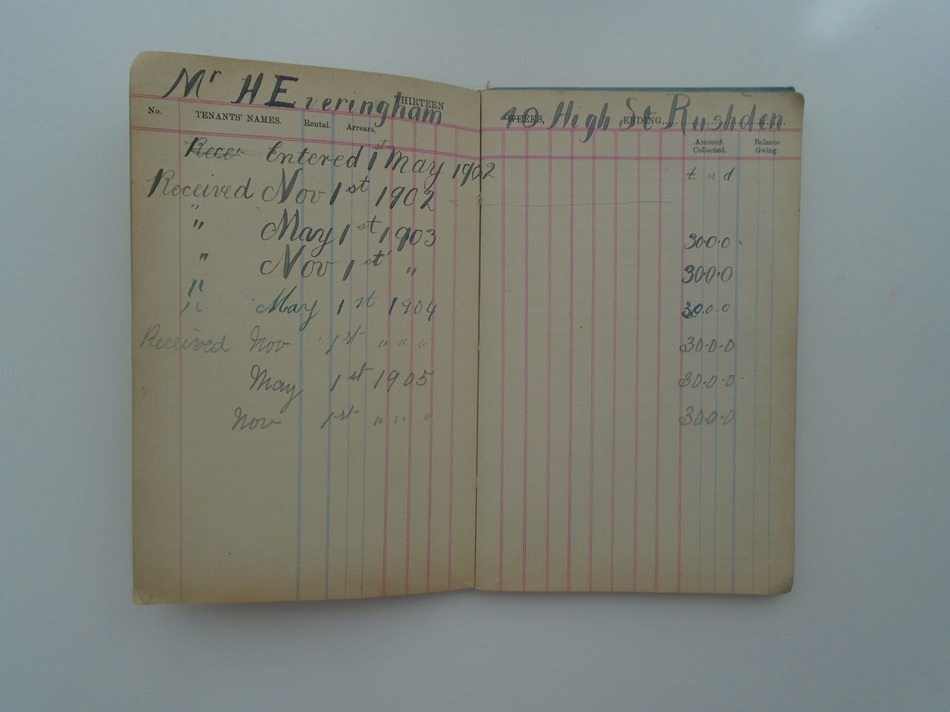 Mr H Everingham 40 High St Rushden
THIRTEEN WEEKS, ENDING
No. TENANTS' NAMES. Rental. Arrears. Amount Collected. Balance Owing.
Rece Entered 1st May 1902 £ s d
Received Nov 1st 1902
" May 1st 1903 30.0.0
" Nov 1st " 30.0.0
" May 1st 1904 30.0.0
Received Nov 1st " " " 30.0.0
May 1st 1905 30.0.0
Nov 1st " " " 30.0.0